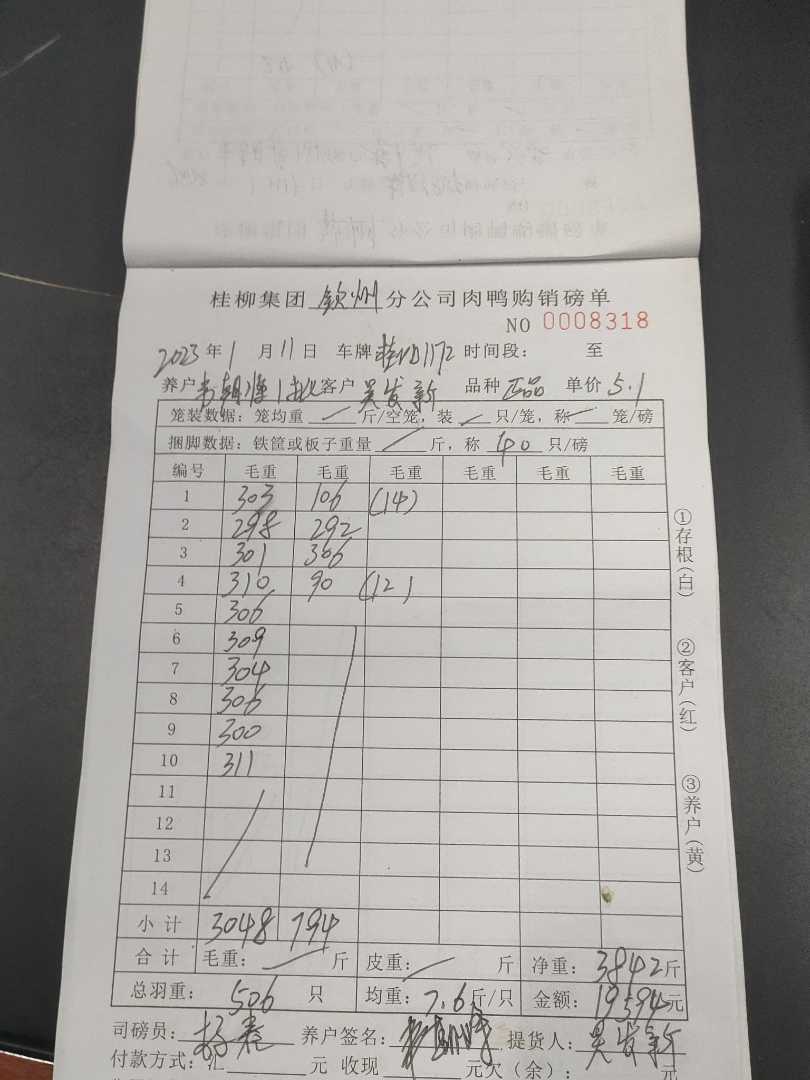 桂柳集团 钦州 分公司肉鸭购销磅单
NO 0008318
2023 年 1 月 11 日 车牌 1172 时间段: 至
养户 客户 吴发新 品种 正品 单价 5.1
笼装数据: 笼均重 斤/空笼, 装 只/笼, 称 笼/磅
捆脚数据: 铁筐或板子重量 斤, 称 40 只/磅
编号 毛重 毛重 毛重 毛重 毛重 毛重
1 303 106 (14)
2 298 292
3 301 306
4 310 90 (12)
5 306
6 309
7 304
8 306
9 300
10 311
11
12
13
14
小计 3048 794
合计 毛重: 斤 皮重: 斤 净重: 3842 斤
总羽重: 506 只 均重: 7.6 斤/只 金额: 19594 元
司磅员: 养户签名: 提货人: 吴发新
付款方式: 汇 元 收现 元欠(余): 元
①存根(白)
②客户(红)
③养户(黄)